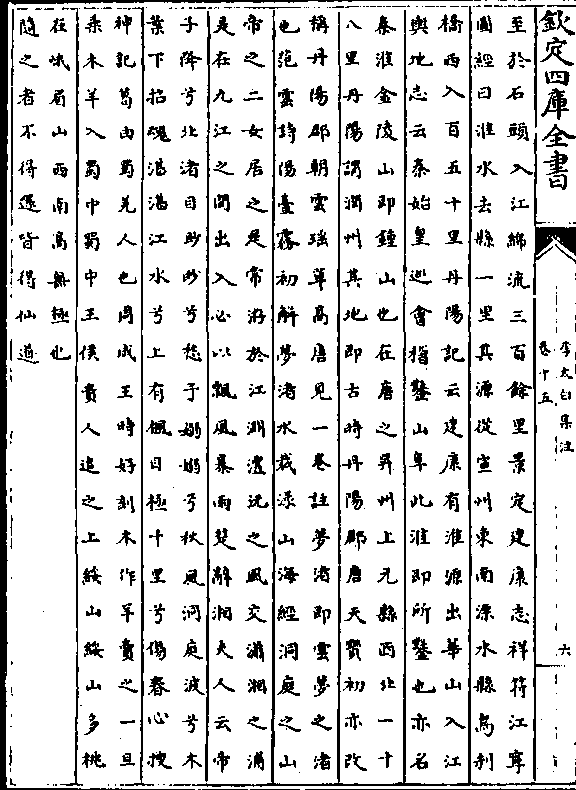 欽定四庫全書
李太白集注
卷十五
六
至於石頭入江綿流三百餘里景定建康志祥符江寧
圖經曰淮水去縣一里其源從宣州東南溧水縣烏刹
橋西入百五十里丹陽記云建康有淮源出華山入江
輿地志云秦始皇巡會稽鑿山阜此淮即所鑿也亦名
秦淮金陵山即鍾山也在唐之昇州上元縣西北一十
八里丹陽謂潤州其地即古時丹陽郡唐天寶初亦改
稱丹陽郡朝雲瑶草髙唐見一卷註夢渚即雲夢之渚
也范雲詩陽臺霧初解夢渚水裁渌山海經洞庭之山
帝之二女居之是常游於江淵澧沅之風交瀟湘之浦
是在九江之間出入必以飄風暴雨楚辭湘夫人云帝
子降兮北渚目眇眇兮愁予嫋嫋兮秋風洞庭波兮木
葉下招魂湛湛江水兮上有楓目極千里兮傷春心搜
神記葛由蜀羌人也周成王時好刻木作羊賣之一旦
乘木羊入蜀中蜀中王侯貴人追之上綏山綏山多桃
在峨眉山西南髙無極也
隨之者不得還皆得仙道